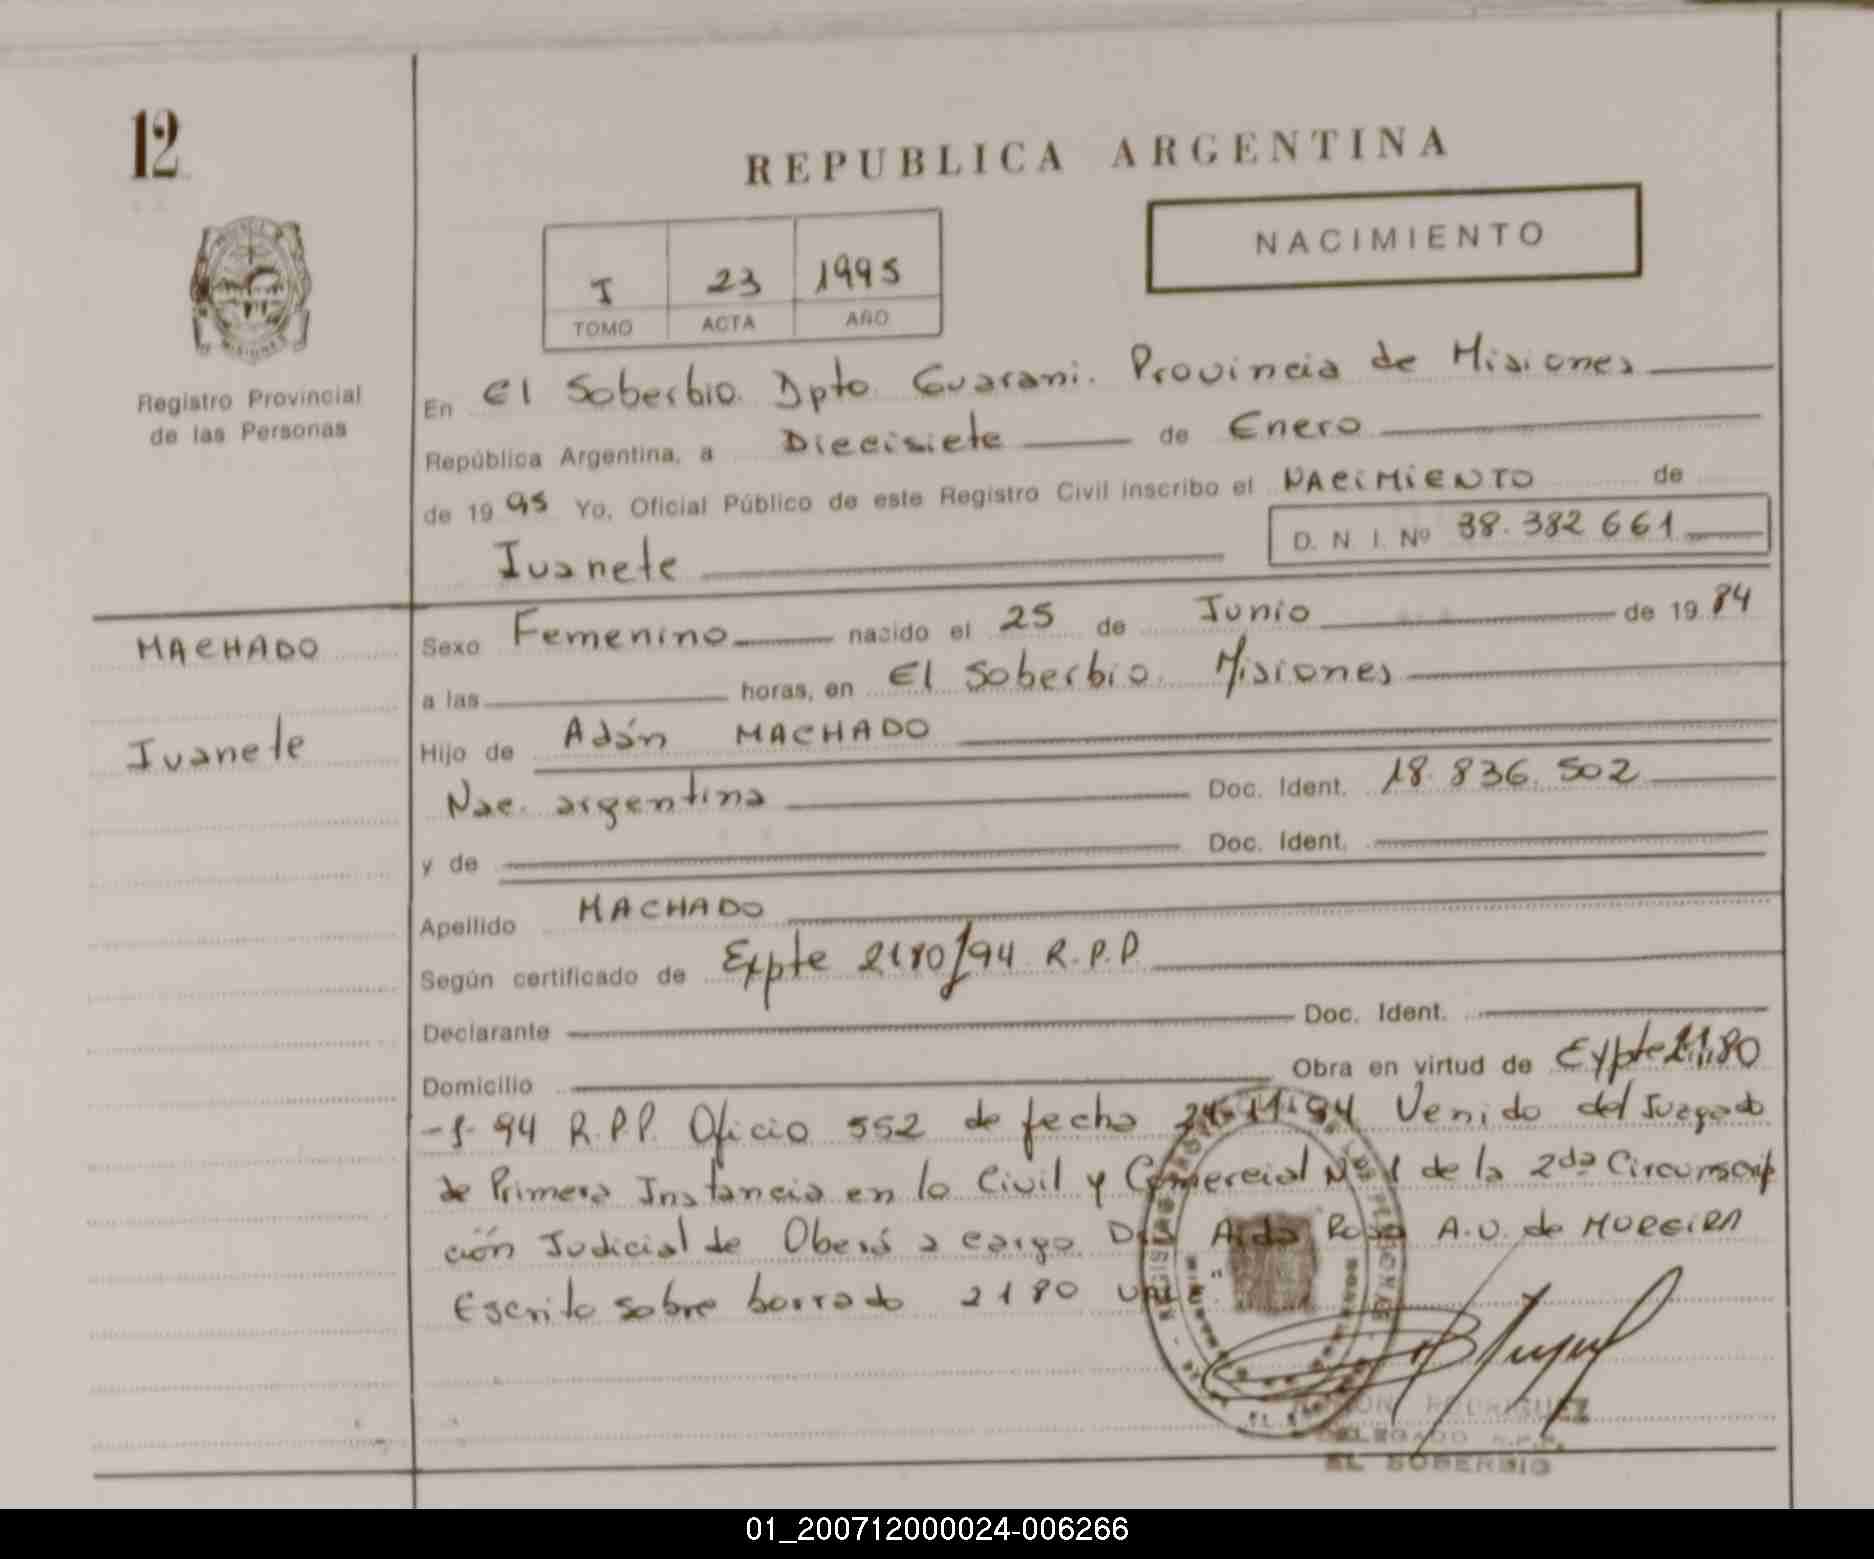 12
REPUBLICA ARGENTINA
NACIMIENTO
I 23 1995
TOMO ACTA AÑO
Registro Provincial
de las Personas
En El Soberbio. Dpto. Guarani. Provincia de Misiones
República Argentina, a Diecisiete de Enero
de 19 95 Yo, Oficial Público de este Registro Civil inscribo el NACIMIENTO de
Ivanete D. N. I. Nº 38.382 661
MACHADO
Ivanete
Sexo Femenino nacido el 25 de Junio de 19 84
a las horas, en El Soberbio. Misiones
Hijo de Adán MACHADO
Nac. argentina Doc. Ident. 18.836.502
y de Doc. Ident.
Apellido MACHADO
Según certificado de Expte 2180/94 R.P.P
Declarante Doc. Ident.
Domicilio Obra en virtud de Expte 2180
-/- 94 R.P.P. Oficio 552 de fecha 24-11-94 Venido del Juzgado
de Primera Instancia en lo Civil y Comercial Nº 1 de la 2da Circunscrip
ción Judicial de Oberá a cargo Dra Aida Rosa A.U. de MOREIRA
Escrito sobre borrado 2180 vale.
RODRIGUEZ
DELEGADO R.P.P.
EL SOBERBIO
01_200712000024-006266